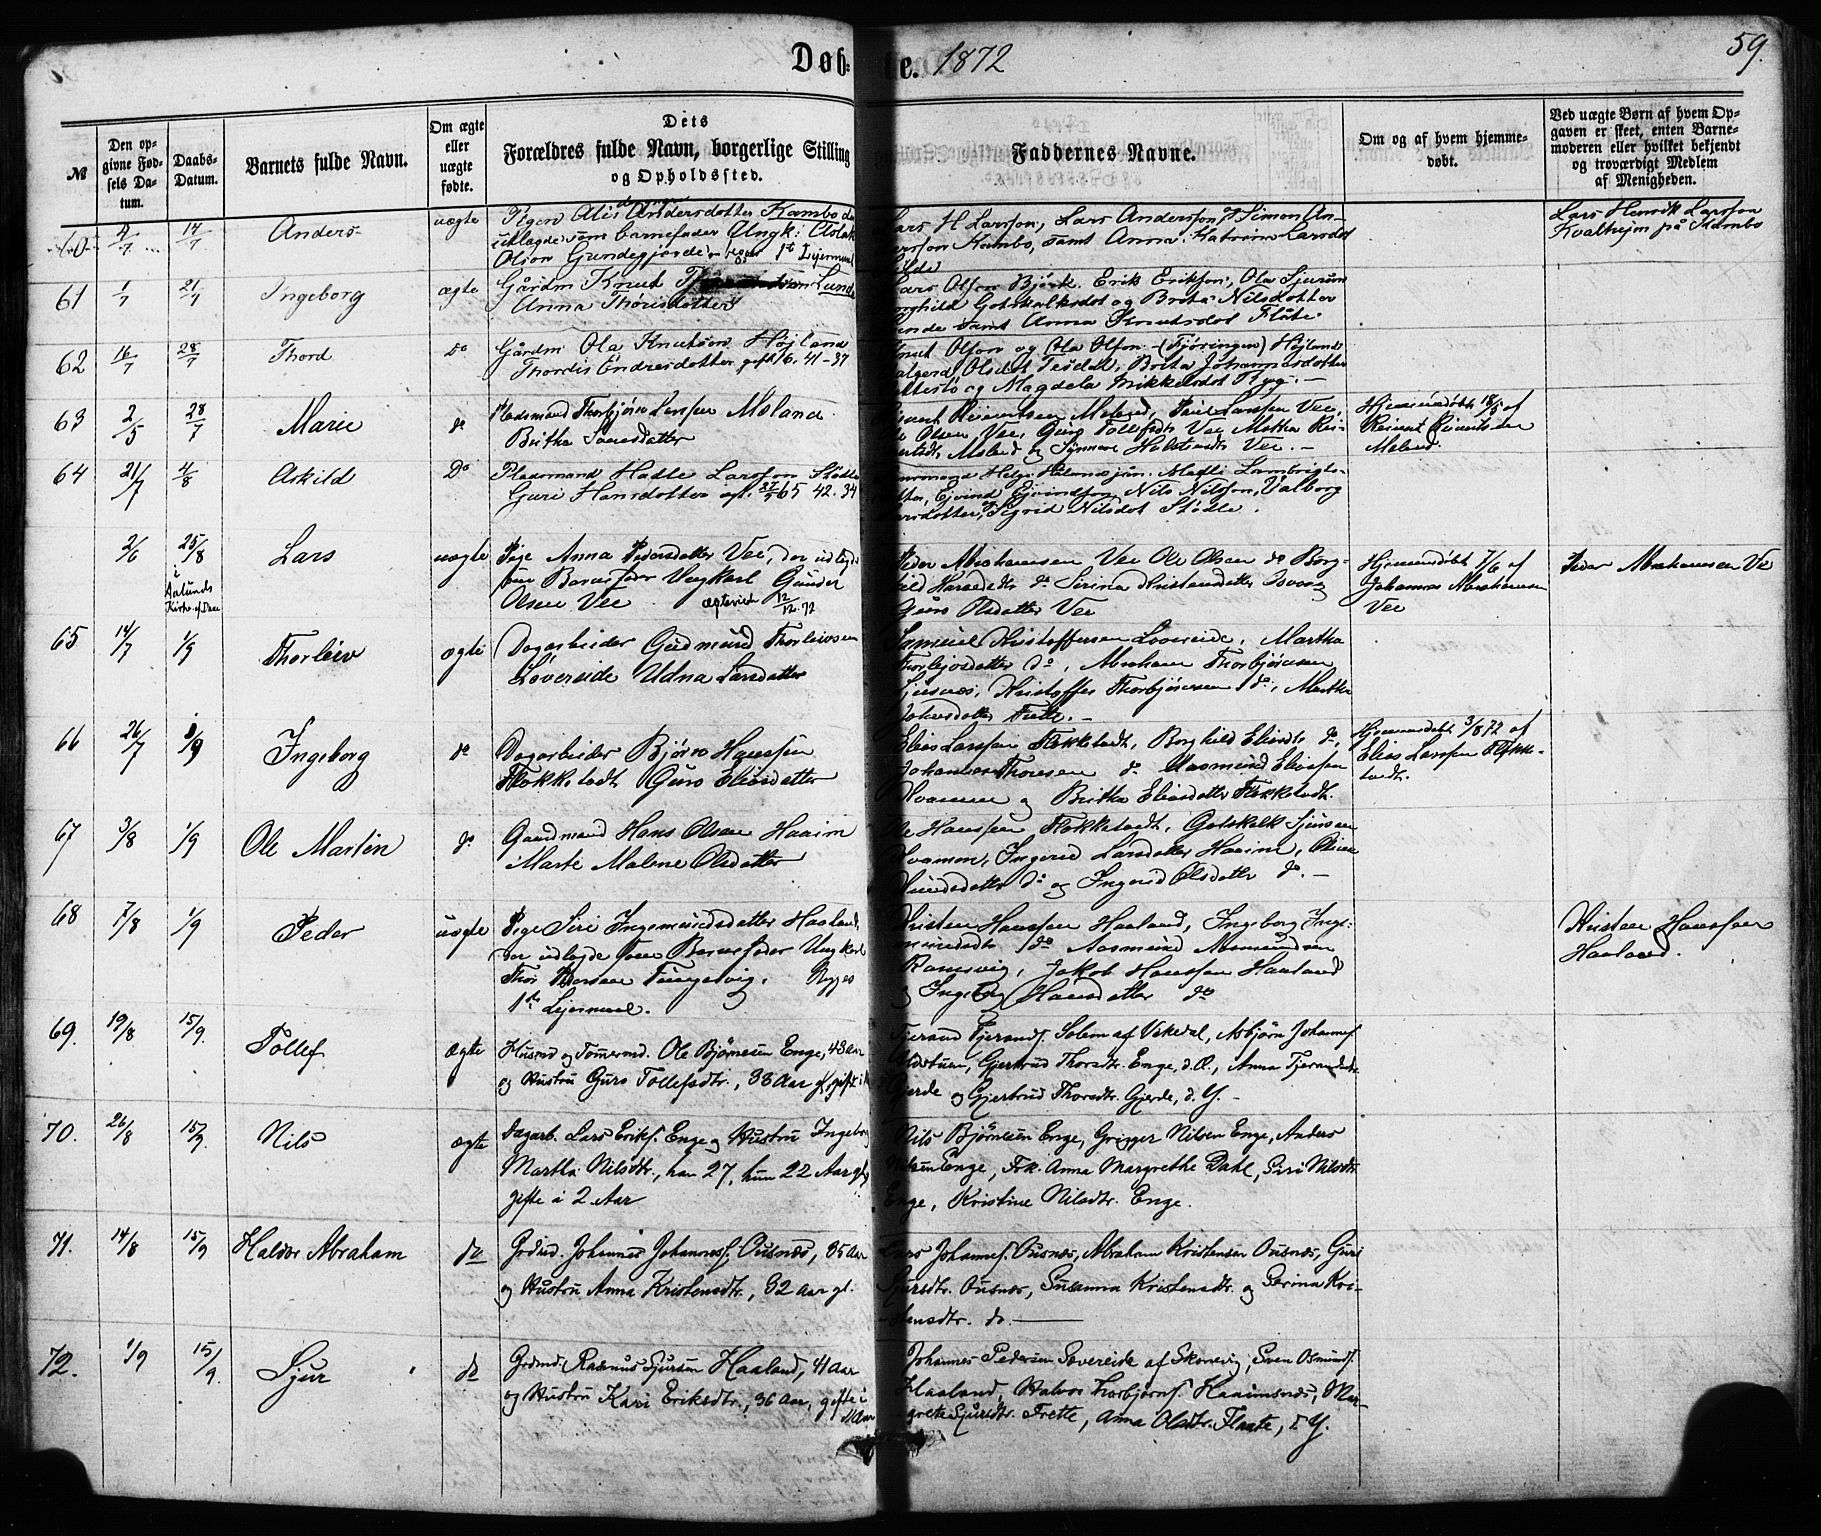 Døb- te. 1872
59.
№
Den op-
givne Fød-
sels Da-
tum.
Daabs-
Datum.
Barnets fulde Navn.
Om ægte
eller
uægte
fødte.
Dets
Forældres fulde Navn, borgerlige Stilling
og Opholdssted.
Faddernes Navne.
Om og af hvem hjemme-
døbt.
Ved uægte Børn af hvem Op-
gaven er skeet, enten Barne-
moderen eller hvilket bekjendt
og troværdigt Medlem
af Menigheden.
4/7 14/7 Anders uægte
Pigen Andersdotter Kambo
utlagde som barnefader Ungk: Aslak
Olson Gundegjerde 1ste Leiermaal
Lars H Larsson, Lars Andersson, Simon An-
Kambo, samt Anna Katrina
Lars Henrik Larsson
Kvalhejm på Kambo
61 1/7 21/7 Ingeborg ægte
Gårdm Knut Lunde
Anna Thorisdotter
Lars Olson Bjørk, Erik Erikson, Ola Sjurson
Gotskalksdot og Brita Nilsdotter
Lunde samt Anna Knutsdot Flåte.
62 16/7 28/7 Thord Do
Gårdm Ola Knutson Højland
Thordis Endresdotter gift 16. 41-37
Knut Olson og Ola Olson (Fjøringen) Højland
Olsdot Tesdal, Brita Johannesdotter
og Magdela Mikkelsdot Ryg. -
63 2/5 28/7 Marie do
Pladsmand Thorbjørn Larssen Meland
Britha
Meland, Larssen Vee,
Olsen Vee, Guro Tollefsdtr Vee Martha Rei-
Meland og Synneve Vee. -
Hjemmedøbt 18/5 af
Reinert Reinertsen
Meland.
64 21/7 4/8 Askild Do
Pladsmand Halle Larsson Stødle
Guri Hansdotter 65 42. 34
Helge Malli Lambrigts-
dotter, Ejvind Ejvindson, Nils Nilsson, Valborg
Larsdotter, Sigrid Nilsdot Stødle.
2/6 25/8 Lars uægte
i
Aalunds
Kirke af
Pige Anna Pedersdatter Vee, der udlagde
som Barnefader Ungkarl Gunder
Olsen Vee ægteviet 12/12. 72
Peder Abrahamsen Vee Ole Olsen do Borg-
hild do Serina Kristensdatter
Guro Olsdatter Vee
Hjemmedøbt 7/6 af
Johannes Abrahamsen
Vee
Peder Abrahamsen Ve
65 14/7 1/9 Thorleiv ægte
Dagarbeider Gudmund Thorleivsen
Løvereide Udna Larsdatter
Samuel Kristoffersen Løvereide, Martha
Thorbjørsdatter do, Abraham Thorbjørnsen
Kristoffer Thorbjørnsen do, Martha
Johansdatter Frette. -
66 26/7 1/9 Ingeborg do
Dagarbeider Bjørn Hanssen
Flokkstadt Guro Eliasdatter
Elias Larssen Flokkstadt, Borghild Eliasdtr do,
Johannes Thoresen do Aasmund Eliassen
Hvammen og Britha Eliasdatter Flokkstadt.
Hjemmedøbt 3/8 72 af
Elias Larssen Flokk-
stadt.
67 3/8 1/9 Ole Martin do
Gaardmand Hans Olsen Haaim
Marte Malene Olsdatter
Ole Hanssen Flokkstadt, Gotskalk Sjursen
Hvamen, Ingerid Larsdatter Haaim, Olsen
do og Ingerid Olsdatter do. -
68 7/8 1/9 Peder uægte
Pige Siri Ingemundsdatter Haaland,
der udlagde som Barnefader Ungkarl
Thor Thorsen Tungesvig. Begges
1ste Lejermaal.
Kristen Hanssen Haaland, Ingeborg Inge-
mundsdtr do Aasmund Aasmundsen
Ramsvig, Jakob Hanssen Haaland
og Ingeborg Hansdatter do
Kristen Hanssen
Haaland.
69. 19/8 15/9. Tollef Ægte
Husmd og Tømermd. Ole Bjørnesen Enge, 43 Aar
og Hustru Guro Tollefsdtr., 38 Aar gl, gifte i
Tjerand Tjerands. Solem af Vikedal, Asbjørn Johannes.
Gjertrud Thorsdtr. Enge, d. Æ., Anna Tjerandsdtr.
Gjerde og Gjertrud Thorsdtr. Gjerde, d. Y. -
70. 26/8 15/9. Nils ægte
Dagarb. Lars Eriks. Enge og Hustru Ingeborg
Martha Nilsdtr., han 27, hun 22 Aar gl,
gifte i 2 Aar
Nils Bjørnesen Enge, Gregger Nilsen Enge, Anders
Nilsen Enge, Frk. Anna Margrethe Dahl, Siri Nilsdtr.
Enge, Kristine Nilsdtr. Enge.
71. 14/8 15/9 Haldor Abraham do
Grdmd. Johannes Johanness. Ousnæs, 35 Aar
og Hustru Anna Kristensdtr., 32 Aar gl.
Lars Johannes. Ousnæs, Abraham Kristensen Ousnæs, Guri
Sjursdtr. Ousnæs, Susanna Kristensdtr. og Serina Kri-
stensdtr. do. -
72. 1/9 15/9. Sjur do
Grdmd. Rasmus Sjursen Haaland, 41 Aar
og Hustru Kari Eriksdtr., 36 Aar, gifte i
11 Aar
Johannes Pedersen Sævereide af Skonevig, Sven Osmunds.
Haaland, Halvor Thorbjørns. Haaimsnæs, Mar-
grete Sjursdtr. Frette, Anna Olsdtr. Flaate, d. Y.